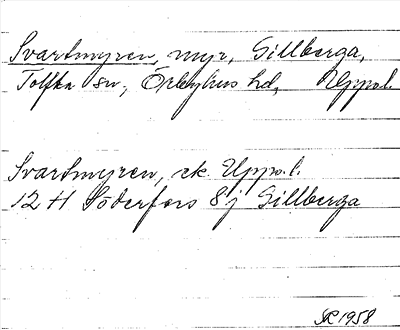 Svartmyren, myr, Gillberga,
Tolfta sn, Örbyhus hd, Uppl.
Svartmyren, ek. Uppl.
12 H Söderfors 8j Gillberga
1958